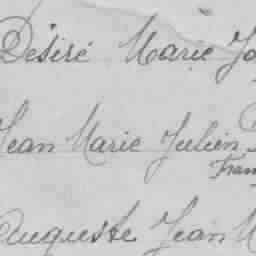 Désiré Marie Jo
Jean Marie Julien
Fran
Auguste Jean M